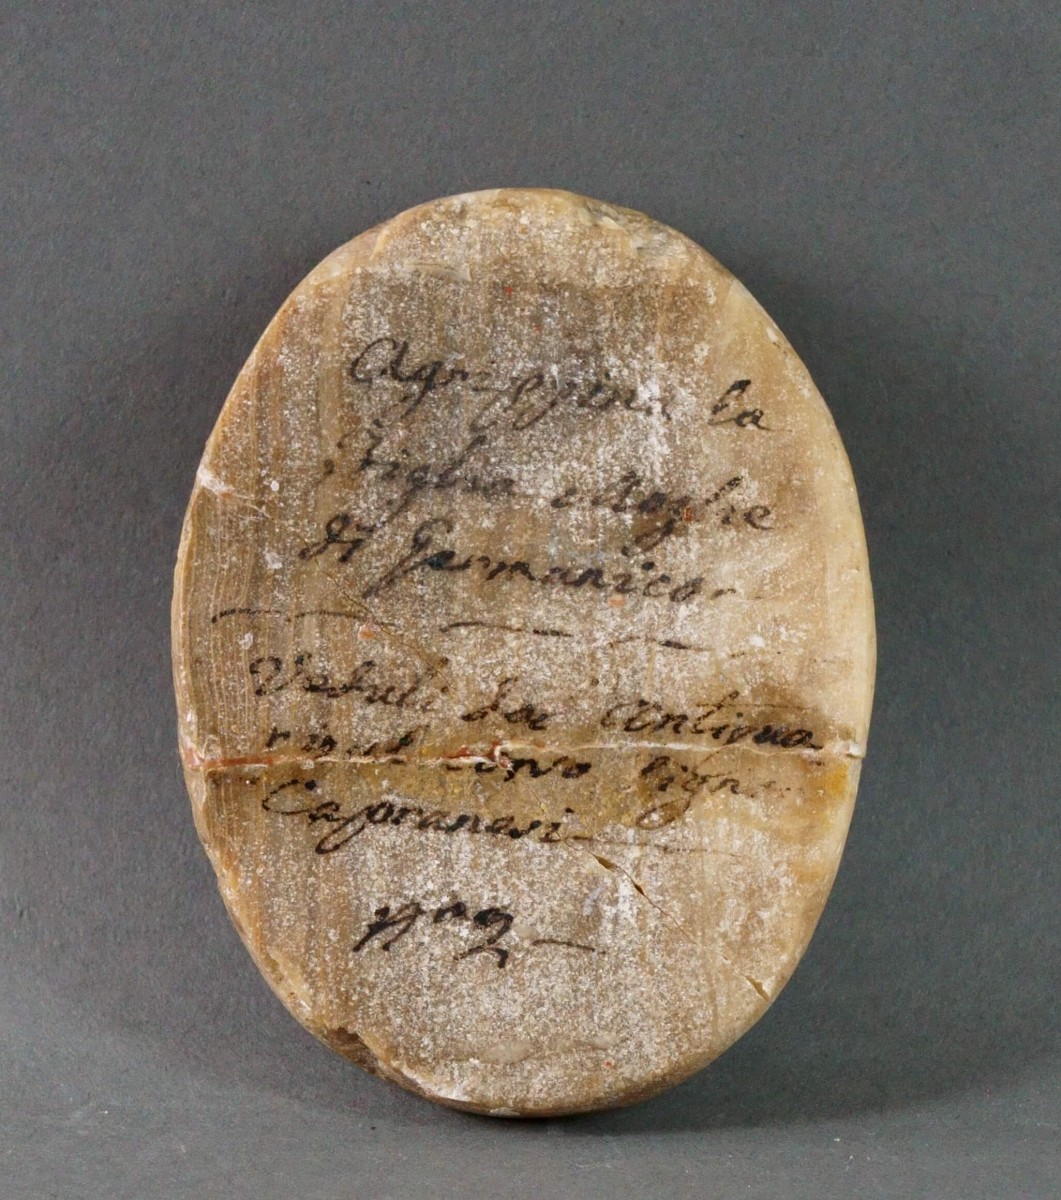 Agrippina la
figlia e Moglie
di Germanico
Veduti dal Antiqua
Signor
Capranesi
N° 2